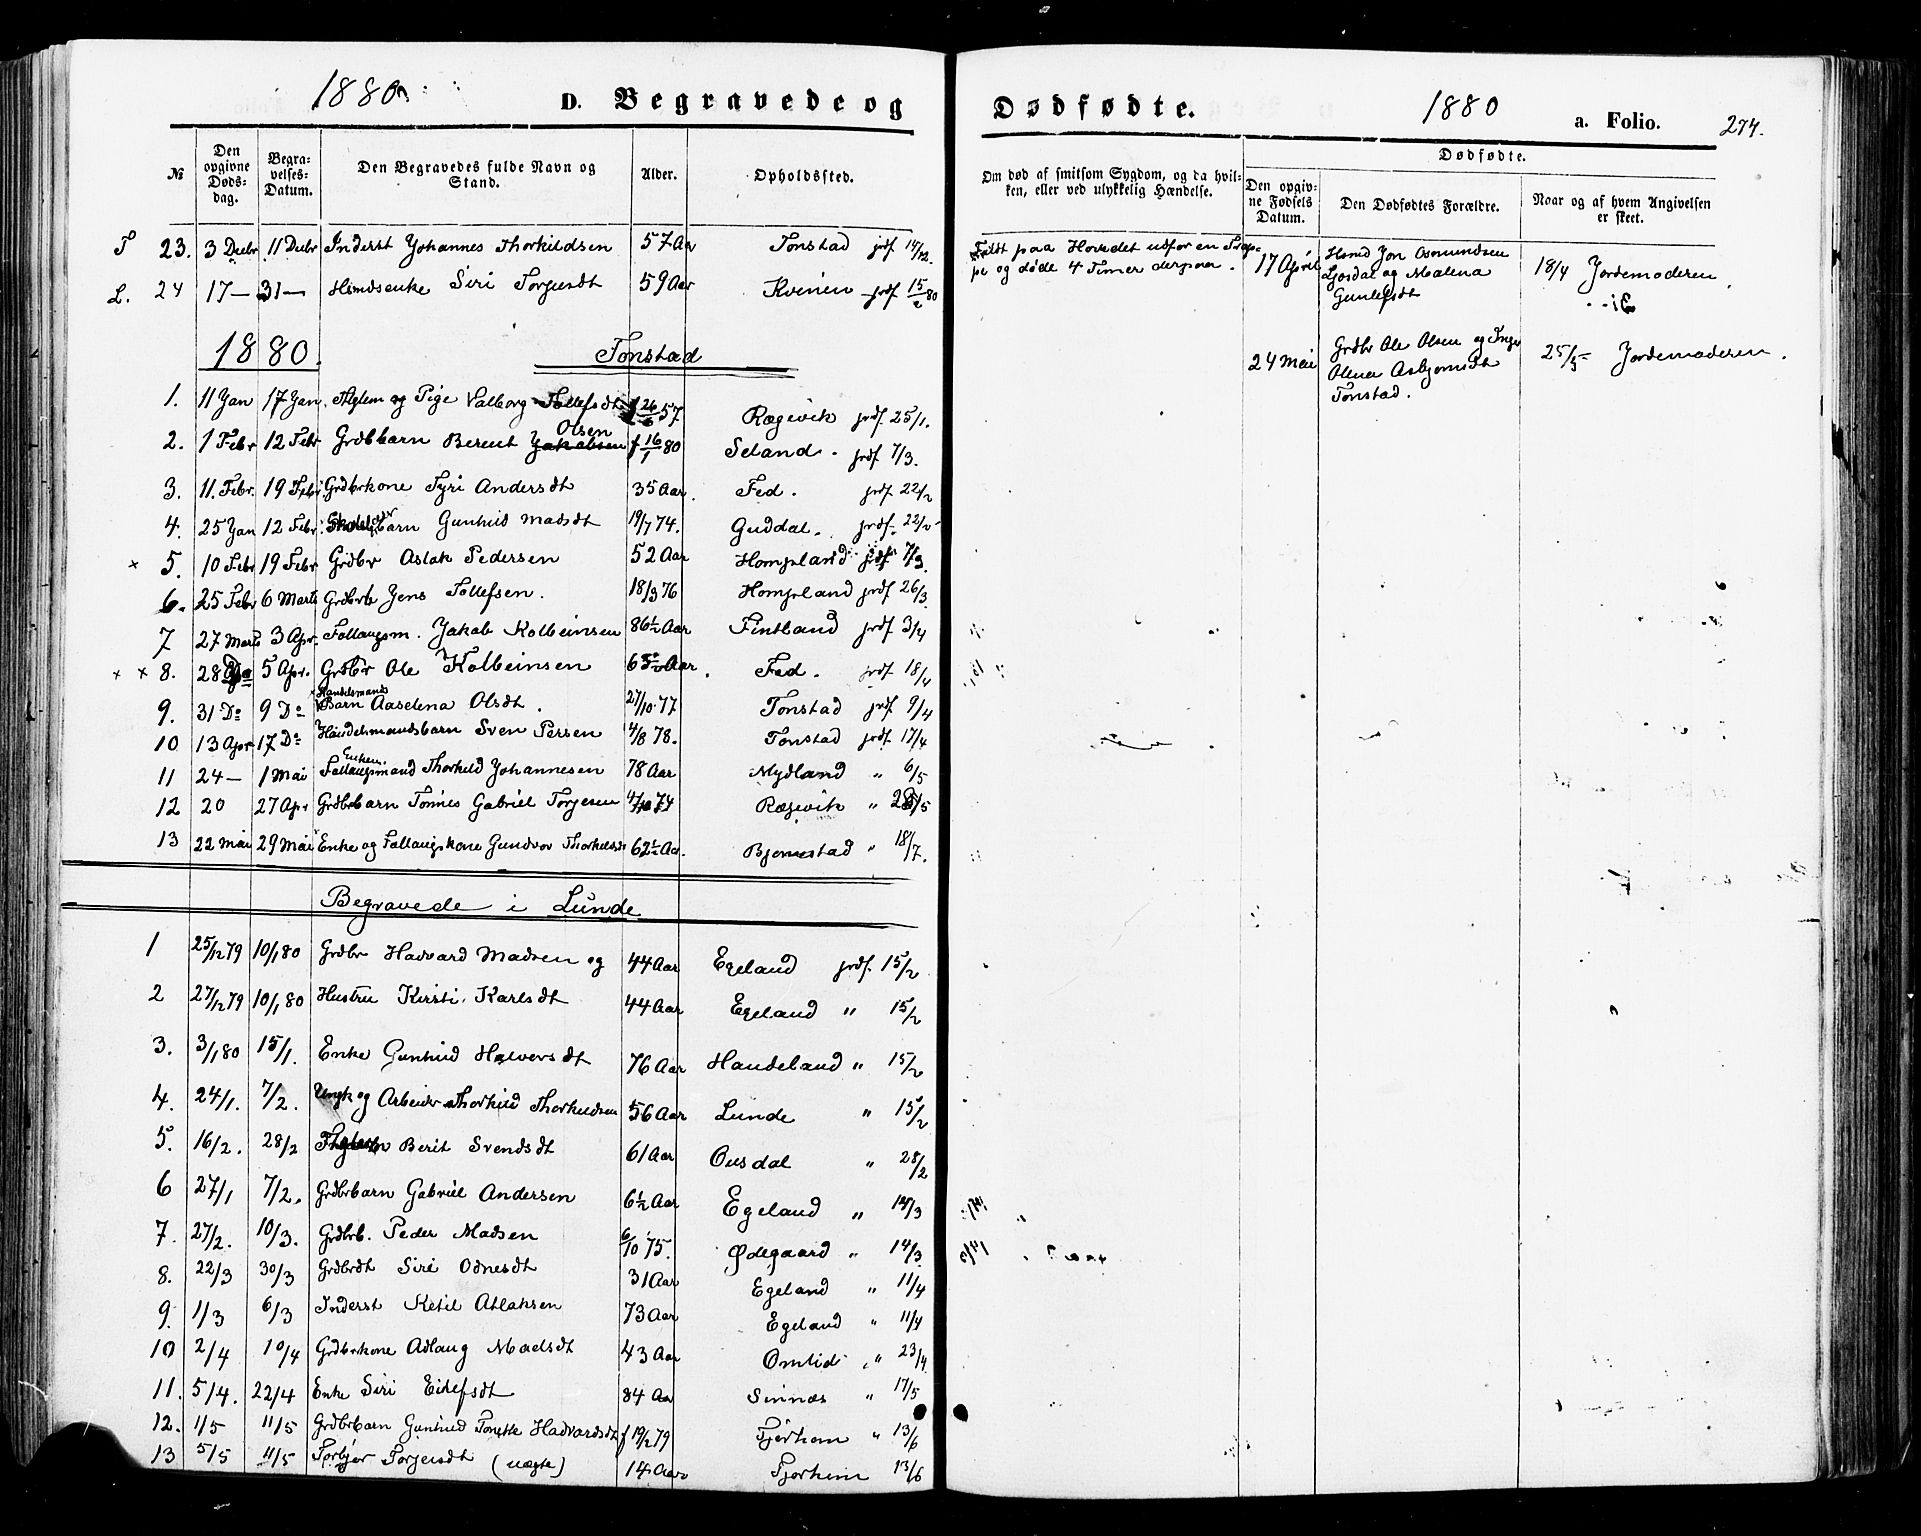 1880 D. Begravede og
№ Den opgivne Døds-dag. Begra-velses-Datum. Den Begravedes fulde Navn og Stand. Alder. Opholdssted.
T 23. 3 Decbr 11 Decbr Inderst Johannes Thorkildsen 57 Aar Tonstad jrdf 14/12.
L. 24 17 — 31 — Siri Torjusdt 59 Aar Kvinen jrdf 15/2 80
1880. Tonstad
1. 11 Jan 17 Jan. og Pige Valborg Tollefsdt f 26/6 57 Røgevik jrdf. 25/1.
2. 1 Febr 12 Febr Grdbbarn Berent Jakobsen Olsen f 16/1 80 Seland. jrdf 7/3.
3. 11. Febr. 19 Febr. Grdbrkone Tyri Andersdt 35 Aar. Fed. jrdf 22/2
4. 25 Jan 12 Febr. Gunhild Madsdt 19/7 74. Guddal. jrdf. 22/2
× 5. 10 Febr 19 Febr Grdbr Aslak Pedersen 52 Aar Hompland jrdf 7/3.
6. 25 Febr 6 Marts Grdbrb Jens Tollefsen. 18/3 76 Hompland jrdf 26/3
7 27 Marts 3 Apr. Follaugsm. Jakob Kolbeinsen 86½ Aar Fintland jrdf 3/4
× × 8. 28 Do 5 Apr. Grdbr Ole Kolbeinsen Aar. Fed. jrdf 18/4
9. 31 Do 9 Do Handelsmands Barn Aaselena Olsdt. 27/10 77 Tonstad jrdf 9/4
10 13 Apr 17 Do Handelsmandsbarn Sven Persen 4/8 78. Tonstad jrdf. 17/4
11 24 — 1 Mai Enkem. Follaugsmand Thorkild Johannesen 78 Aar Mydland " 6/5
12 20 27 Apr Grdbrbarn Tønnes Gabriel Torjesen 74 Røgevik "
13 22 Mai 29 Mai Enke og Follaugskone Gundvor Thorkelsdt 62½ Aar. Bjørnestad " 18/7.
Begravede i Lunde
1 25/12 79 10/1 80 Grdbr Hadvard Madsen og 44 Aar Egeland jrdf. 15/2
2 27/12 79 10/1 80 Hustru Kirsti Karlsdt 44 Aar Egeland " 15/2
3. 3/1 80 15/1. Enke Gunhild Halvorsdt 76 Aar Haudeland " 15/2
4. 24/1. 7/2. Ungk og Arbeider Thorkild Thorkildsen 56 Aar Lunde " 15/2
5. 16/2. 28/2 Berit Svendsdt 61 Aar Ousdal " 28/2
6 27/1 7/2. Grdbrbarn Gabriel Andersen 6½ Aar Egeland " 14/3
7. 27/2. 10/3. Grdbrb. Peder Madsen 6/10 75. Ødegaard " 14/3
8. 22/3 30/3 Grdbrdt Siri Odnesdt 31 Aar Egeland " 11/4
9. 1/3 6/3 Inderst Ketil Atlaksen 73 Aar Egeland " 11/4
10 2/4 10/4 Grdbrkone Adlaug Madsdt 43 Aar Omlid " 23/4
11. 5/4. 22/4 Enke Siri Eilefsdt 84 Aar Sinnæs " 17/5
12. 1/5 11/5 Grdbrbarn Gunhild Tonette Hadvardsdt f 19/2 79 Tjørhom " 13/6
13 5/5 11/5 Torbjør Torjusdt (uægte) 14 Aar Tjørhom 13/6
Dødfødte. 1880 a. Folio. 274.
Om død af smitsom Sygdom, og da hvil-ken, eller ved ulykkelig Hændelse. Dødfødte.
Den opgiv-ne Fødsels Datum. Den Dødfødtes Forældre. Naar og af hvem Angivelsen er skeet.
Faldt paa Hovedet udfor en Trap-
pe og døde 4 Timer derpaa.
17 April Jon Osmundsen Ljosdal og Malena Gunlefsdt 18/4 Jordemoderen.
24 Mai Grdbr Ole Olsen og Inger Olena Asbjørnsdt Tonstad. 25/5 Jordemoderen.